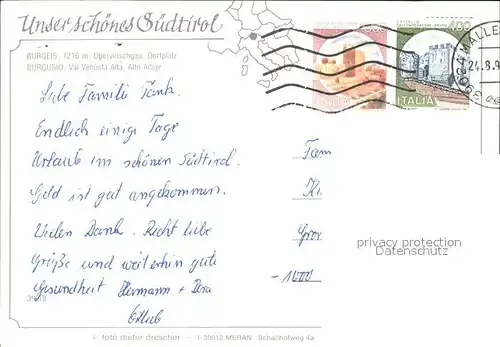 Unser schönes Südtirol
BURGEIS, 1216 m, Obervinschgau, Dorfplatz
BURGUSIO, Val Venosta Alta, Alto Adige
400
ITALIA
39024 MALLES
24.8.9
Liebe Familie
Endlich einige Tage
Urlaub im schönen Südtirol.
Geld ist gut angekommen.
Vielen Dank. Recht liebe
Grüße und weiterhin gute
Gesundheit Hermann + Dora
Fam
Kl
-1000
privacy protection
Datenschutz
© foto dieter drescher - I-39012 MERAN - Schallhofweg 4a